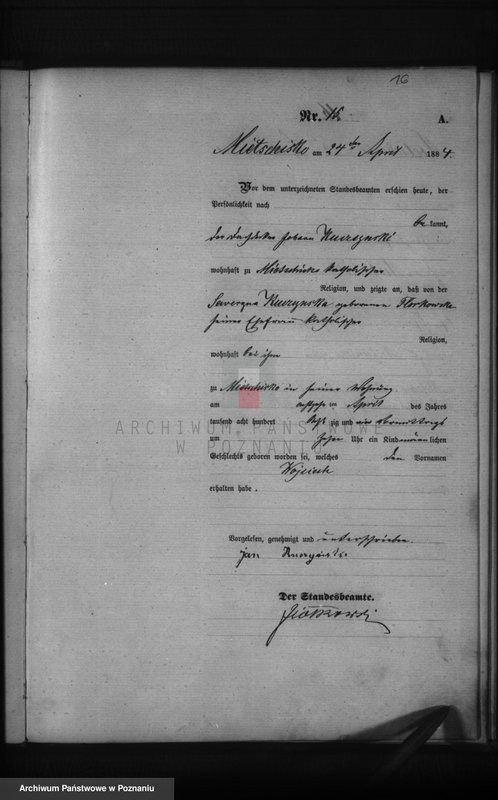 16
Nr. 15.
A.
Mietschisko am 24ten April 1884.
Vor dem unterzeichneten Standesbeamten erschien heute, der
Persönlichkeit nach
be kannt,
der Dachdecker Johann Kuczynski
wohnhaft zu Mietschisko katholischer
Religion, und zeigte an, daß von der
Seweryna Kuczynska geborenen Florkowska
seiner Ehefrau katholischer
Religion,
wohnhaft bei ihm
zu Mietschisko in seiner Wohnung
am ten April des Jahres
tausend acht hundert acht zig und vier Vormittags
um zehn Uhr ein Kind männlichen
Geschlechts geboren worden sei, welches den Vornamen
Wojciech
erhalten habe.
Vorgelesen, genehmigt und unterschrieben
Jan Kuczyński
Der Standesbeamte.
ARCHIWUM PAŃSTWOWE
W POZNANIU
Archiwum Państwowe w Poznaniu